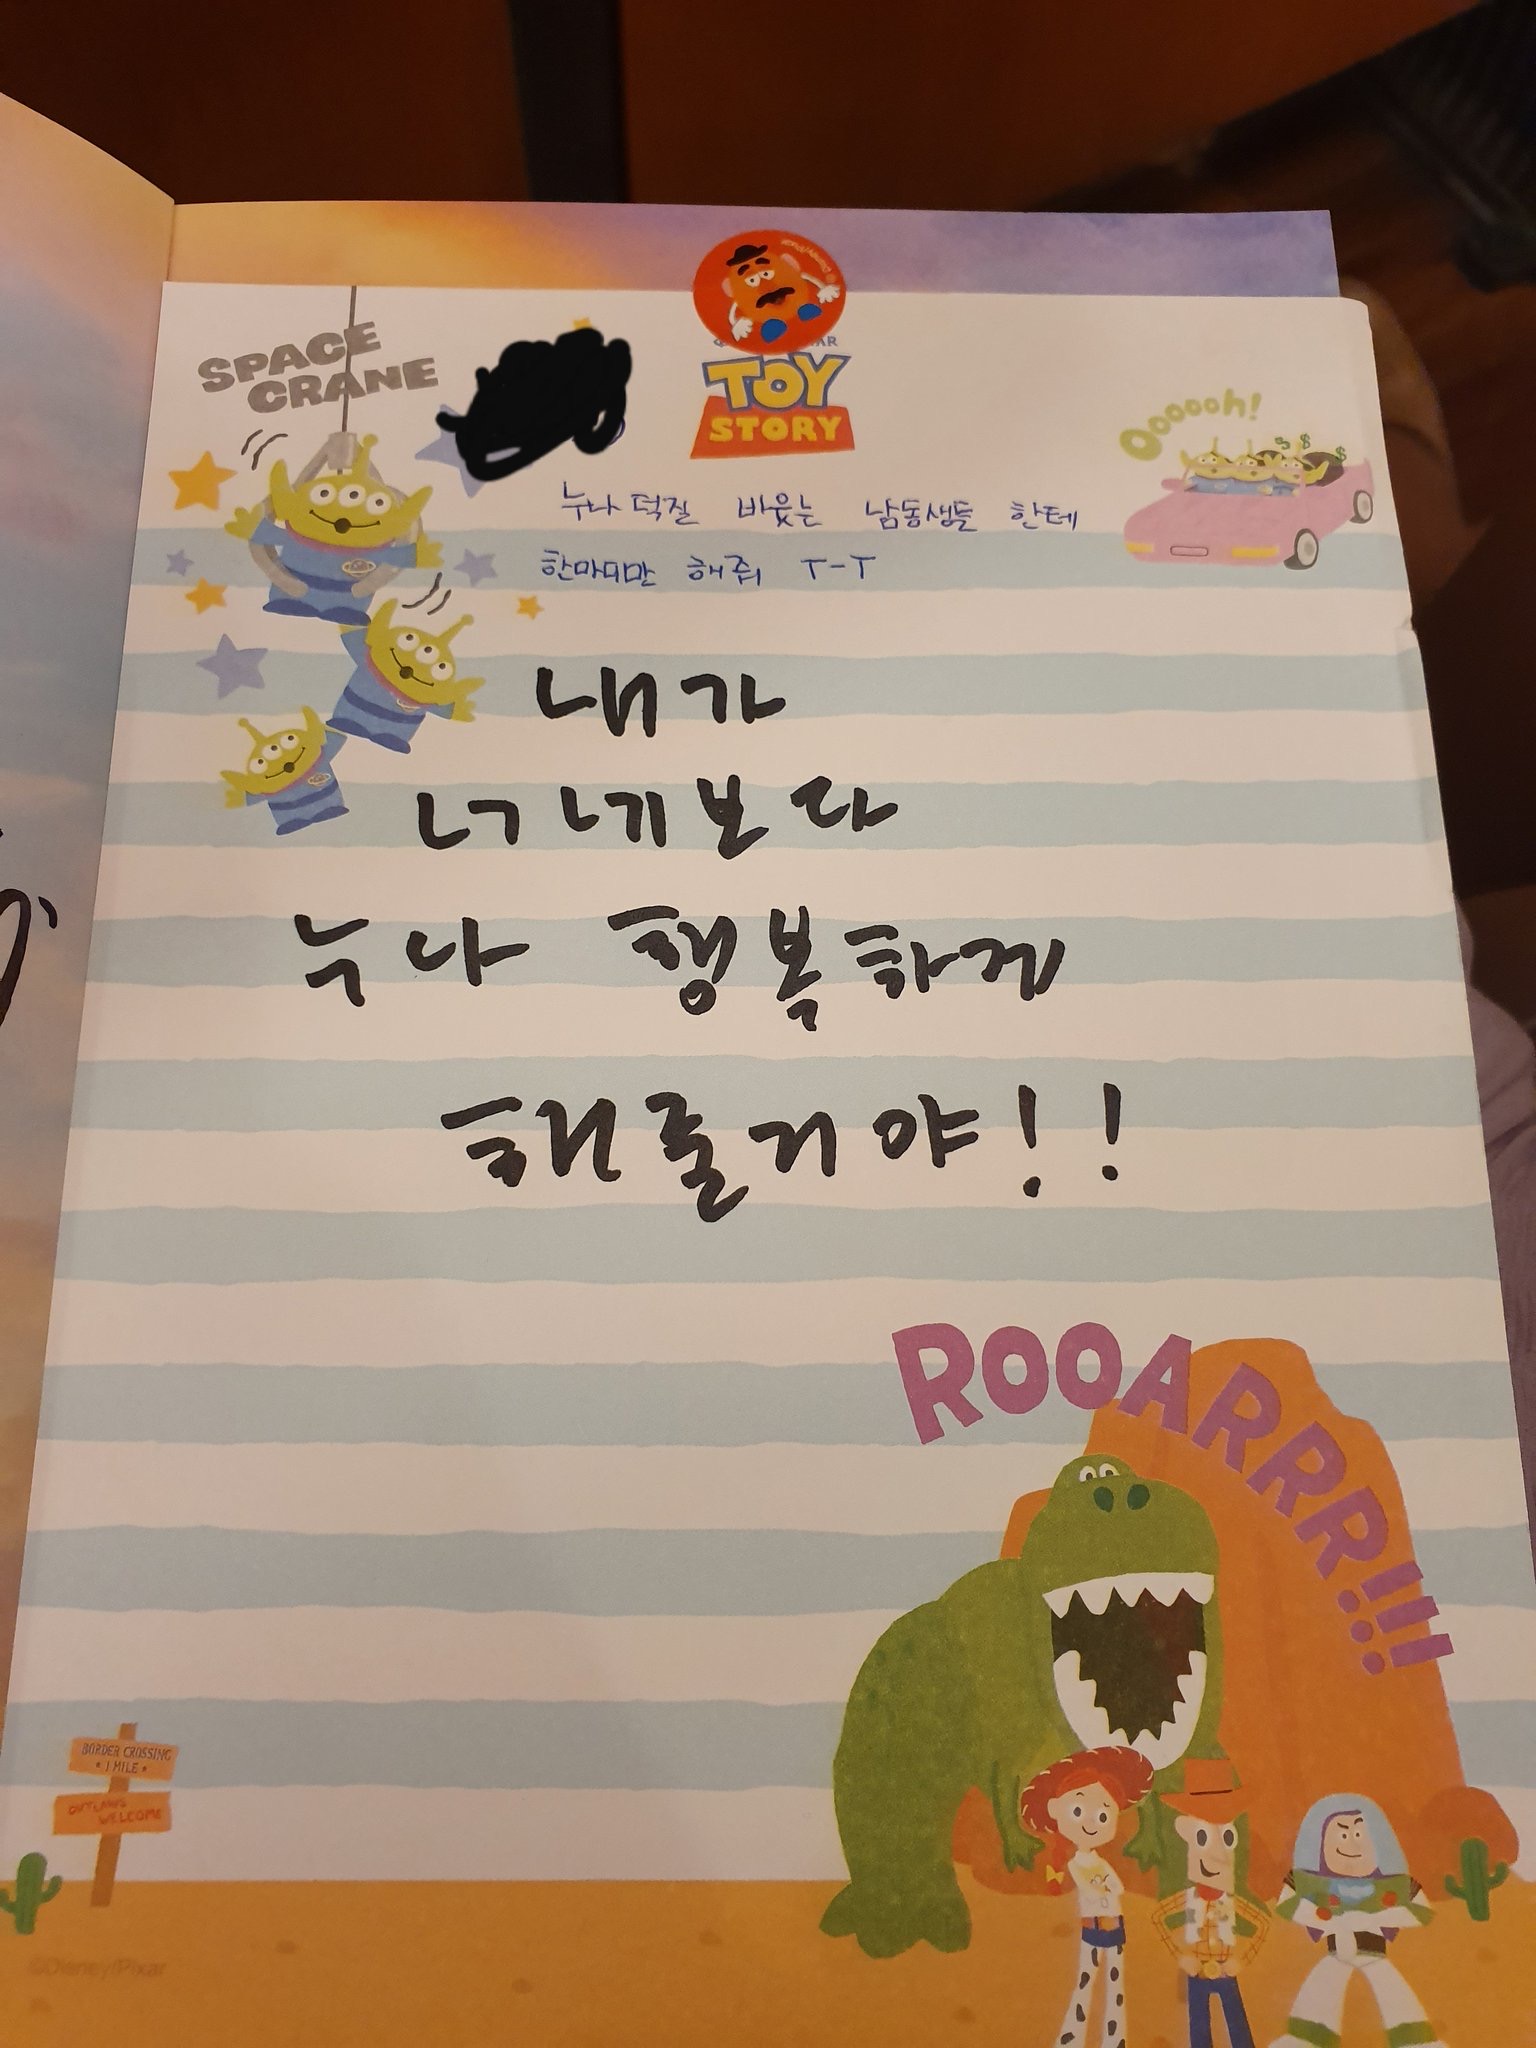 SPACE
CRANE
TOY
STORY
Oooooh!
누나 덕질 비웃는 남동생들 한테
한마디만 해줘 T-T
내가
너네보다
누나 행복하게
해줄거야!!
ROOARRR!!!
BORDER CROSSING
* 1 MILE *
OUTLAWS
WELCOME
©Disney/Pixar